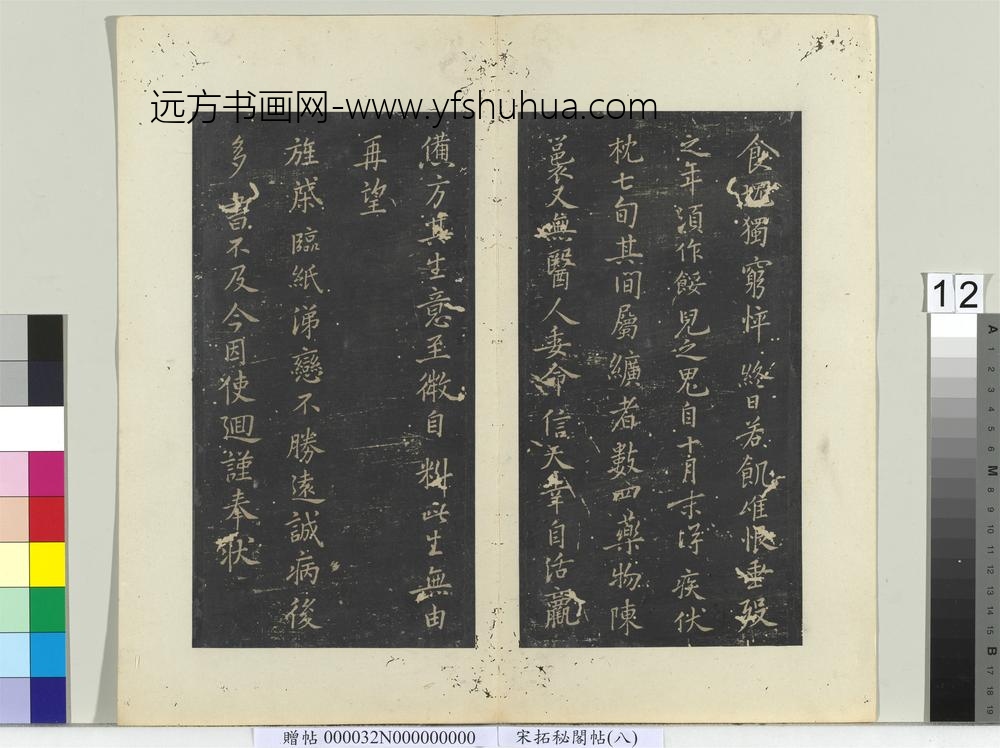 远方书画网-www.yfshuhua.com
食獨窮悴終日苦飢唯恨垂歿
之年須作餒兒之鬼自十月末得疾伏
枕七旬其間屬纊者數四藥物陳
裛又無醫人委命信天幸自活羸
憊方甚生意至微自料此生無由
再望
旌棨臨紙涕戀不勝遠誠病後
多書不及今因使迴謹奉狀
12
A
1
2
3
4
5
6
M
8
9
10
11
12
13
14
15
B
17
18
19
贈帖 000032N000000000 宋拓秘閣帖(八)